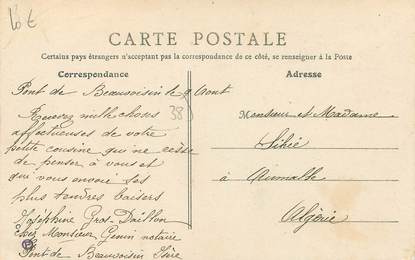 10 €
CARTE POSTALE
Certains pays étrangers n'acceptant pas la correspondance de ce côté, se renseigner à la Poste
Correspondance
Pont de Beauvoisin le 9 Aout
Recevez mille choses
38
affectueuses de votre
petite cousine qui ne cesse
de penser à vous et
qui vous envoie ses
plus tendres baisers
Joséphine Gros-Daillon
Chez Monsieur Genin notaire
Pont-de Beauvoisin Isère
Adresse
Monsieur et Madame
à Aumale
Algérie